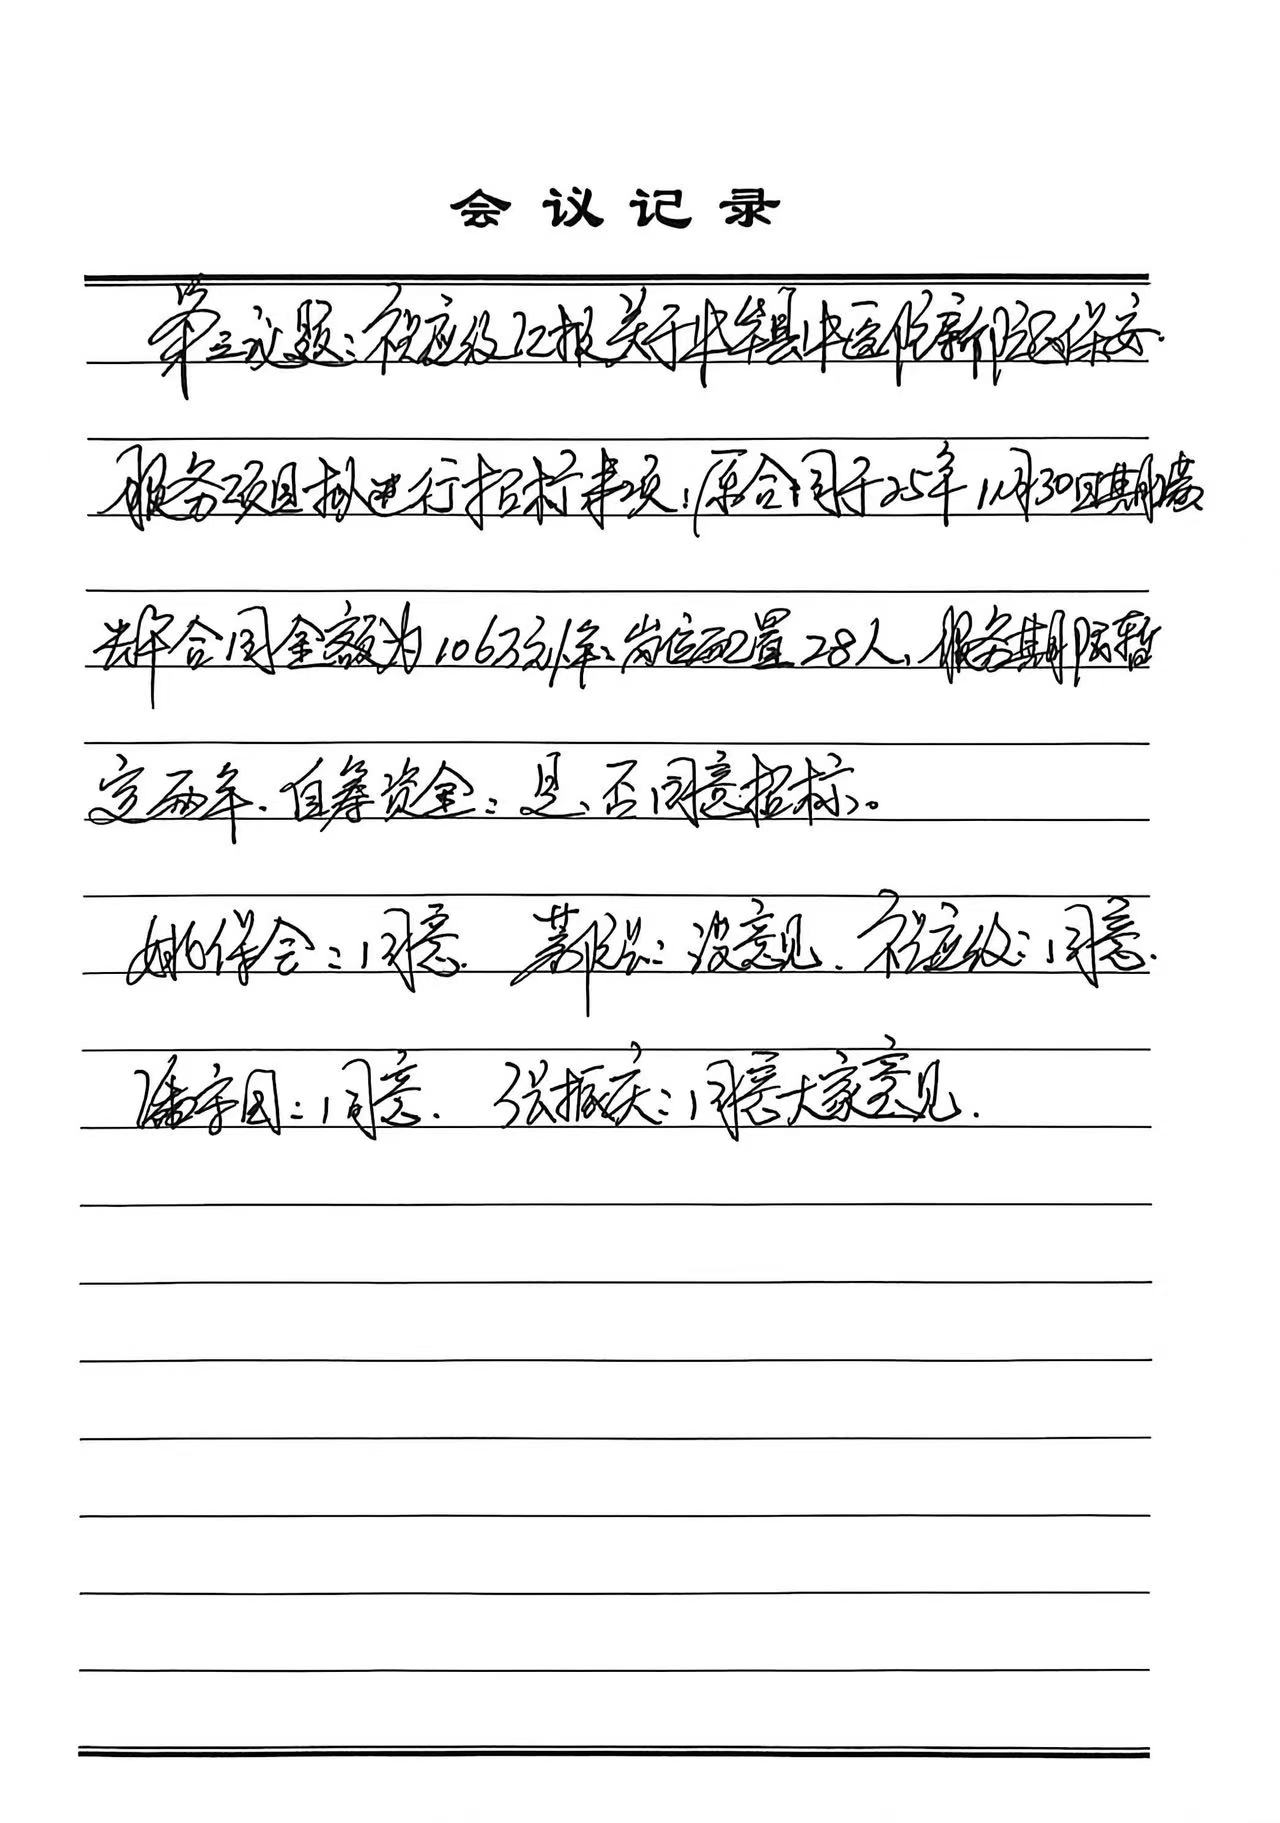 会议记录
第三议题：祝应级汇报关于华县中医院新院区保安.
服务项目拟进行招标事项：原合同于25年11月30日期满
合同金额为106万元/年：岗位配置28人、服务期限暂
定两年.自筹资金：是、否同意招标。
姚保会：同意.院长：没意见.祝应级：同意.
潘宇国：同意.张振庆：同意大家意见.